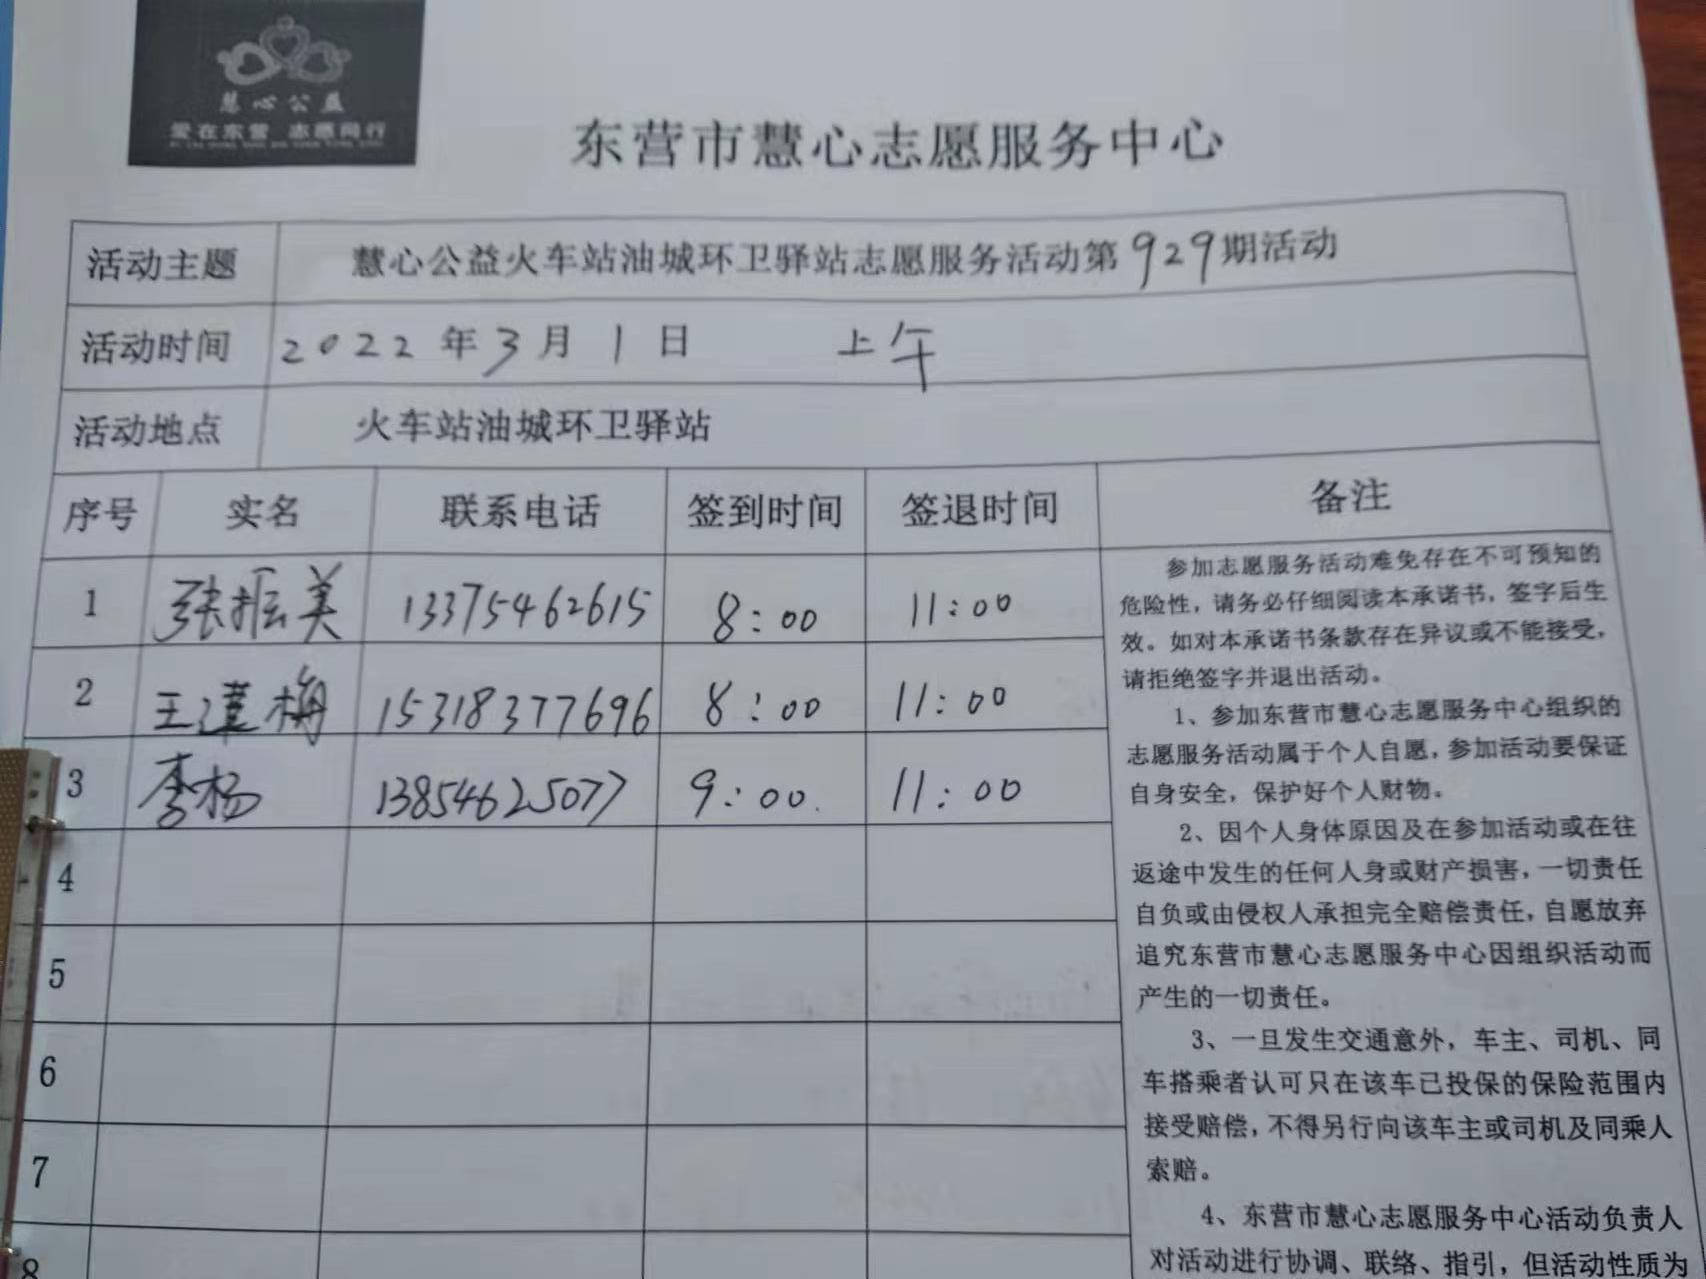 慧心公益
爱在东营 志愿同行
东营市慧心志愿服务中心
活动主题 慧心公益火车站油城环卫驿站志愿服务活动第929期活动
活动时间 2022年3月1日 上午
活动地点 火车站油城环卫驿站
序号 实名 联系电话 签到时间 签退时间 备注
1 张振美 13375462615 8:00 11:00
2 王莲梅 15318377696 8:00 11:00
3 李杨 13854625077 9:00 11:00
4
5
6
7
8
参加志愿服务活动难免存在不可预知的
危险性，请务必仔细阅读本承诺书，签字后生
效。如对本承诺书条款存在异议或不能接受，
请拒绝签字并退出活动。
1、参加东营市慧心志愿服务中心组织的
志愿服务活动属于个人自愿，参加活动要保证
自身安全，保护好个人财物。
2、因个人身体原因及在参加活动或在往
返途中发生的任何人身或财产损害，一切责任
自负或由侵权人承担完全赔偿责任，自愿放弃
追究东营市慧心志愿服务中心因组织活动而
产生的一切责任。
3、一旦发生交通意外，车主、司机、同
车搭乘者认可只在该车已投保的保险范围内
接受赔偿，不得另行向该车主或司机及同乘人
索赔。
4、东营市慧心志愿服务中心活动负责人
对活动进行协调、联络、指引，但活动性质为